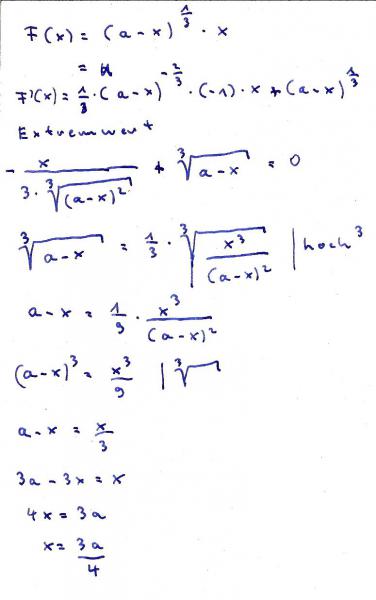 F(x) = (a-x)^{1/3} · x
=
F'(x) = 1/3 · (a-x)^{-2/3} · (-1) · x + (a-x)^{1/3}
Extremwert
- x/(3 · ∛((a-x)²)) + ∛(a-x) = 0
∛(a-x) = 1/3 · ∛(x³/(a-x)²) | hoch 3
a-x = 1/9 · x³/(a-x)²
(a-x)³ = x³/9 | ∛
a-x = x/3
3a - 3x = x
4x = 3a
x = 3a/4